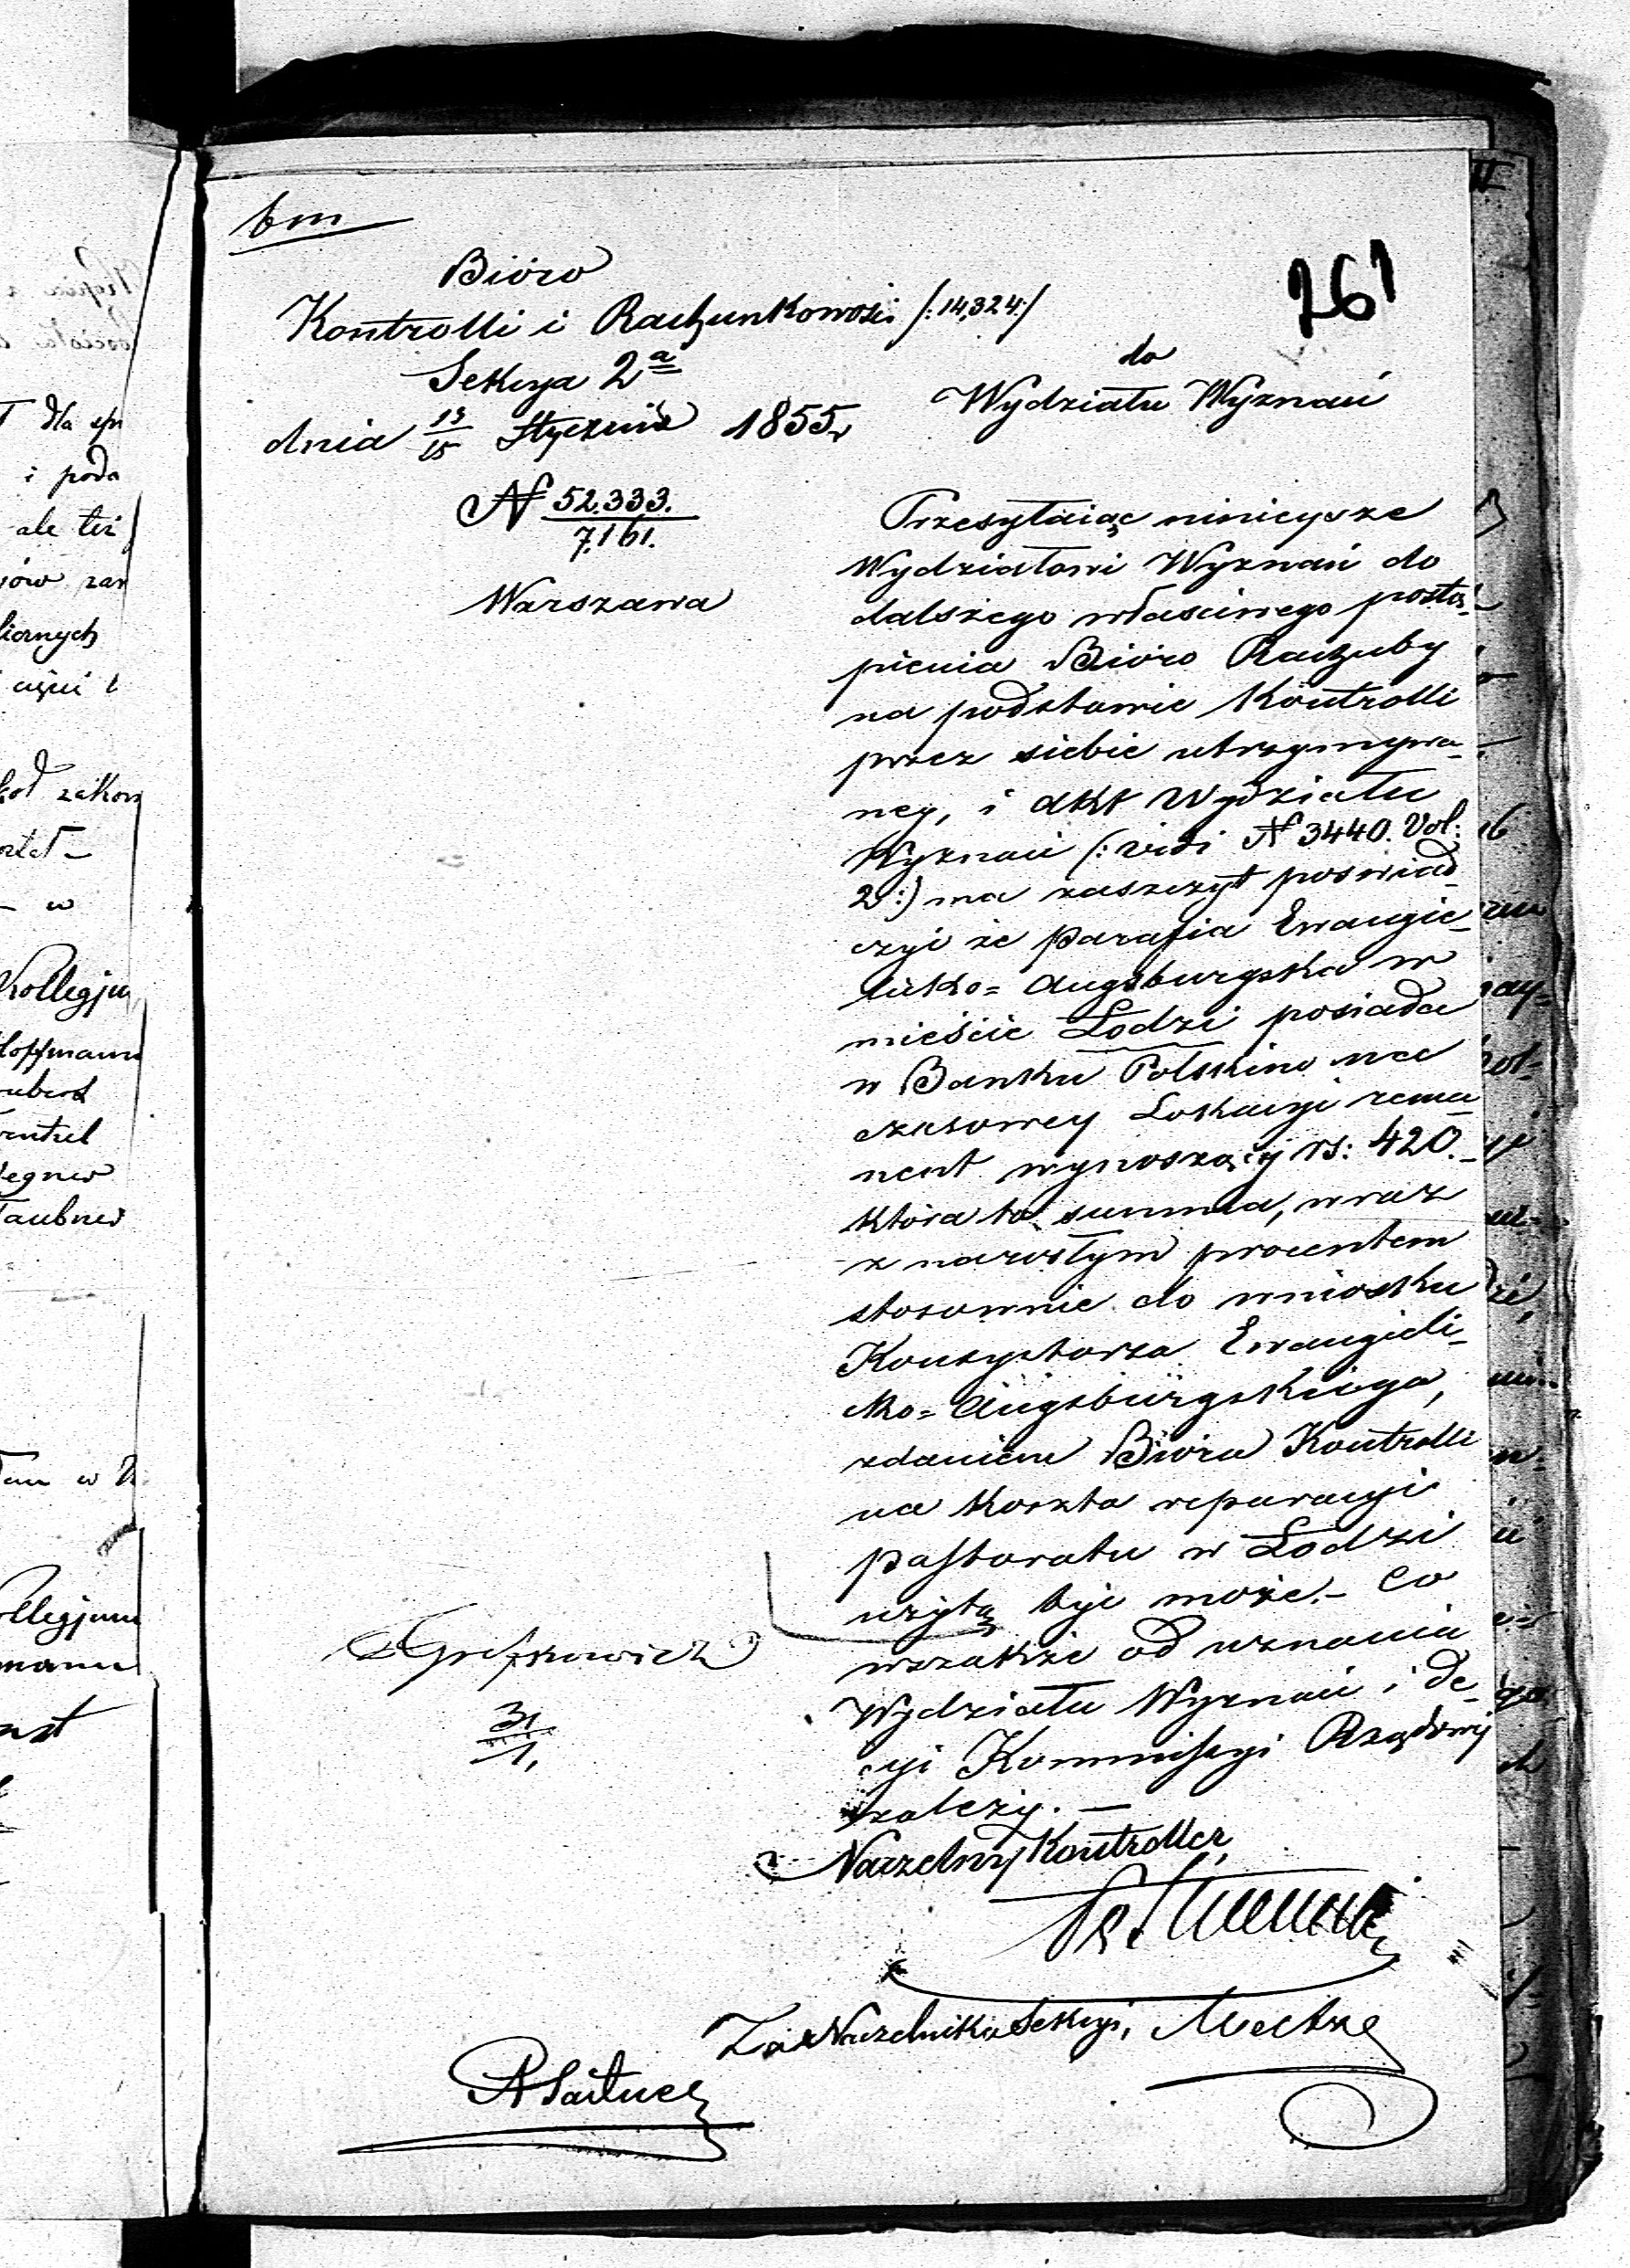 bm
761
Bióro
Kontrolli i Rachunkowości /:14,324:/
Sekcya 2a
dnia 13/15 Stycznia 1855 r
N 52.333.
7,161.
Warszawa
do
Wydziału Wyznań
Przesyłaiąc ninieysze
Wydziałowi Wyznań do
dalszego właściwego postą-
pienia Bióro Rachuby
na podstawie Kontrolli
przez siebie utrzymywa-
ney, i akt Wydziału
Wyznań (: vidi N 3440. Vol:
2:) ma zaszczyt poświad-
czyć że Parafia Ewangie-
licko= Augsburgska w
mieście Łodzi posiada
w Banku Polskim na
czasowey Lokacyi rema-
nent wynoszący rs: 420.-
która to summa, wraz
z narosłym procentem
stosownie do wniosku
Konsystorza Ewangieli-
cko= Augsburgskiego,
zdaniem Bióra Kontrolli
na koszta reparacyi
pastoratu w Łodzi
użytą być może.- Co
wszakże od uznania
Wydziału Wyznań i de-
cyi Kommissyi Rządowey
zależy. —
Naczelny Kontroller
Za Naczelnika Sekcyi,
31/1,
dla
i poda
ale też
zar
Kollegju
Hoffmann